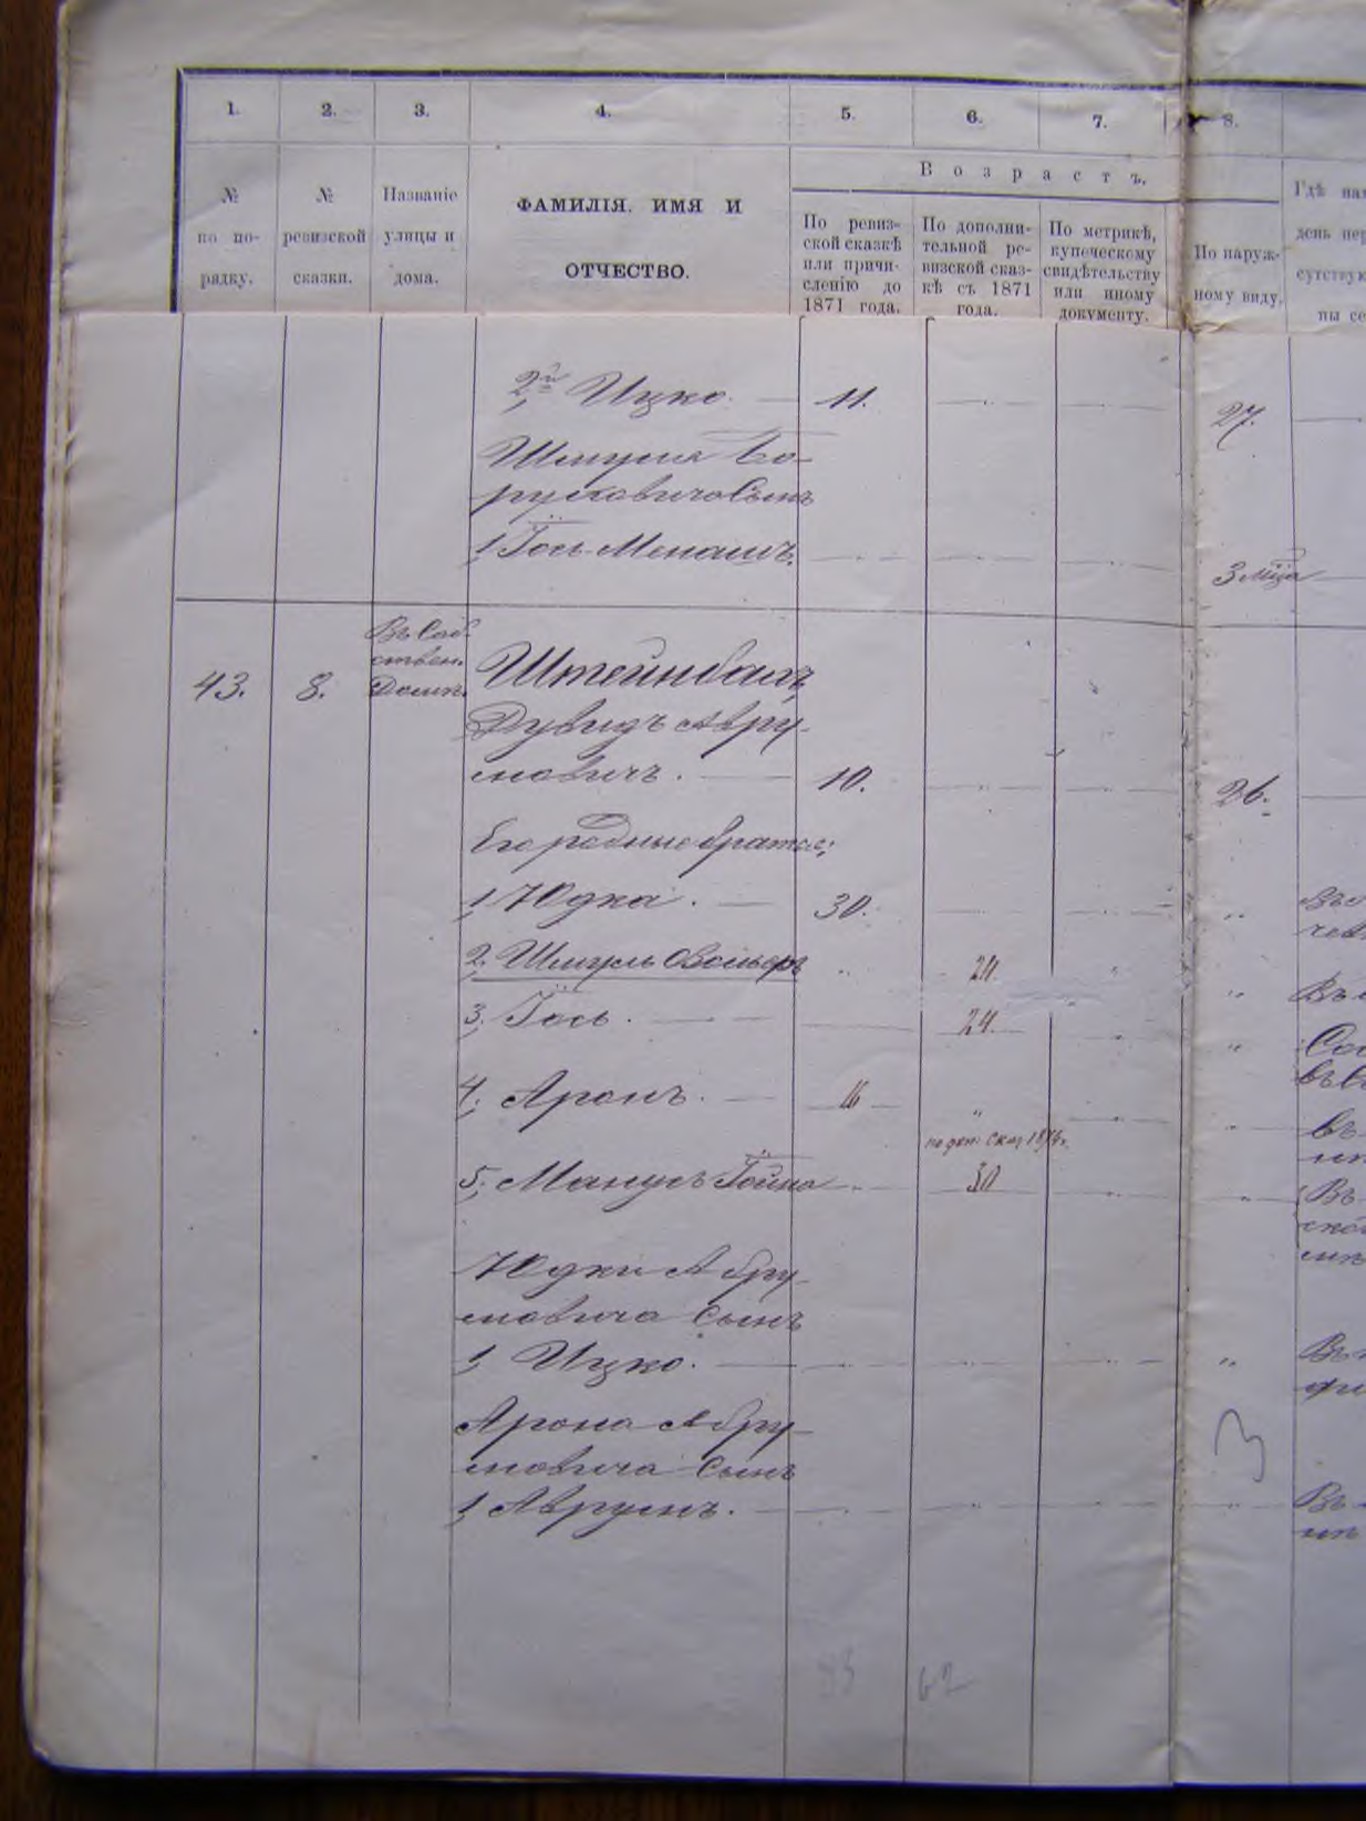 1. 2. 3. 4. 5. 6. 7. 8.
№ по по-рядку.
№ ревизской сказки.
Названіе улицы и дома.
ФАМИЛІЯ. ИМЯ И
ОТЧЕСТВО.
Возрастъ.
По ревиз-
ской сказкѣ
или причи-
сленію до
1871 года.
По дополни-
тельной ре-
визской сказ-
кѣ съ 1871
года.
По метрикѣ,
купеческому
свидѣтельству
или иному
документу.
По наруж-
ному виду.
Гдѣ
день
2й Ицко. 11. 27.
Шмуля Бо-
руховича Сынъ
1, Іось-Менашъ. 3 мца
43. 8. Въ Соб-
ствен.
Домѣ.
Штейнбахъ,
Дувидъ Авру-
мовичъ. 10. 26.
Его родные братья:
1, Юдка. 30.
2, Шмуль 20.
3, Іось. 24.
4, Аронъ. 16
5, Манусъ Іойна 30
Юдки Авру-
мовича сынъ
1, Ицко.
Арона Авру-
мовича сынъ
1, Аврумъ.
62